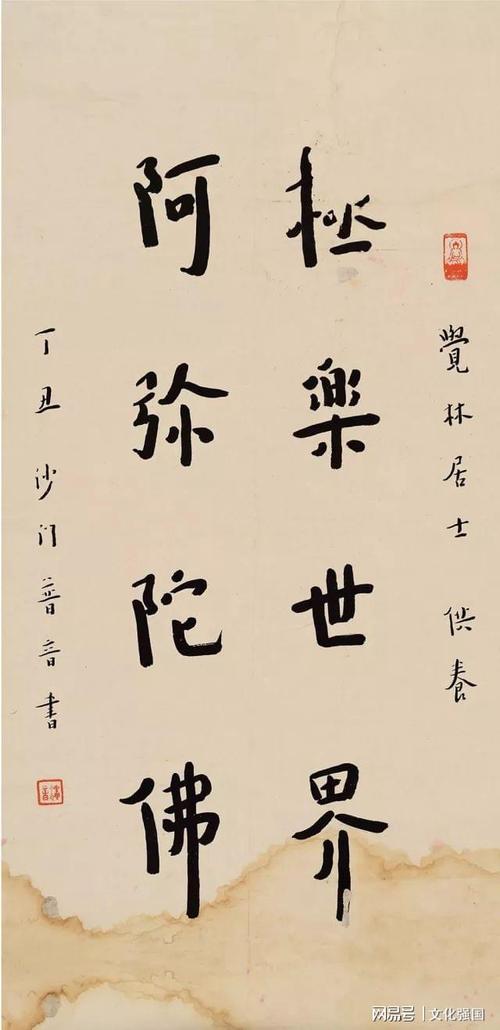 覺林居士 供養
极樂世界
阿弥陀佛
丁丑沙门普音書
网易号 | 文化强国